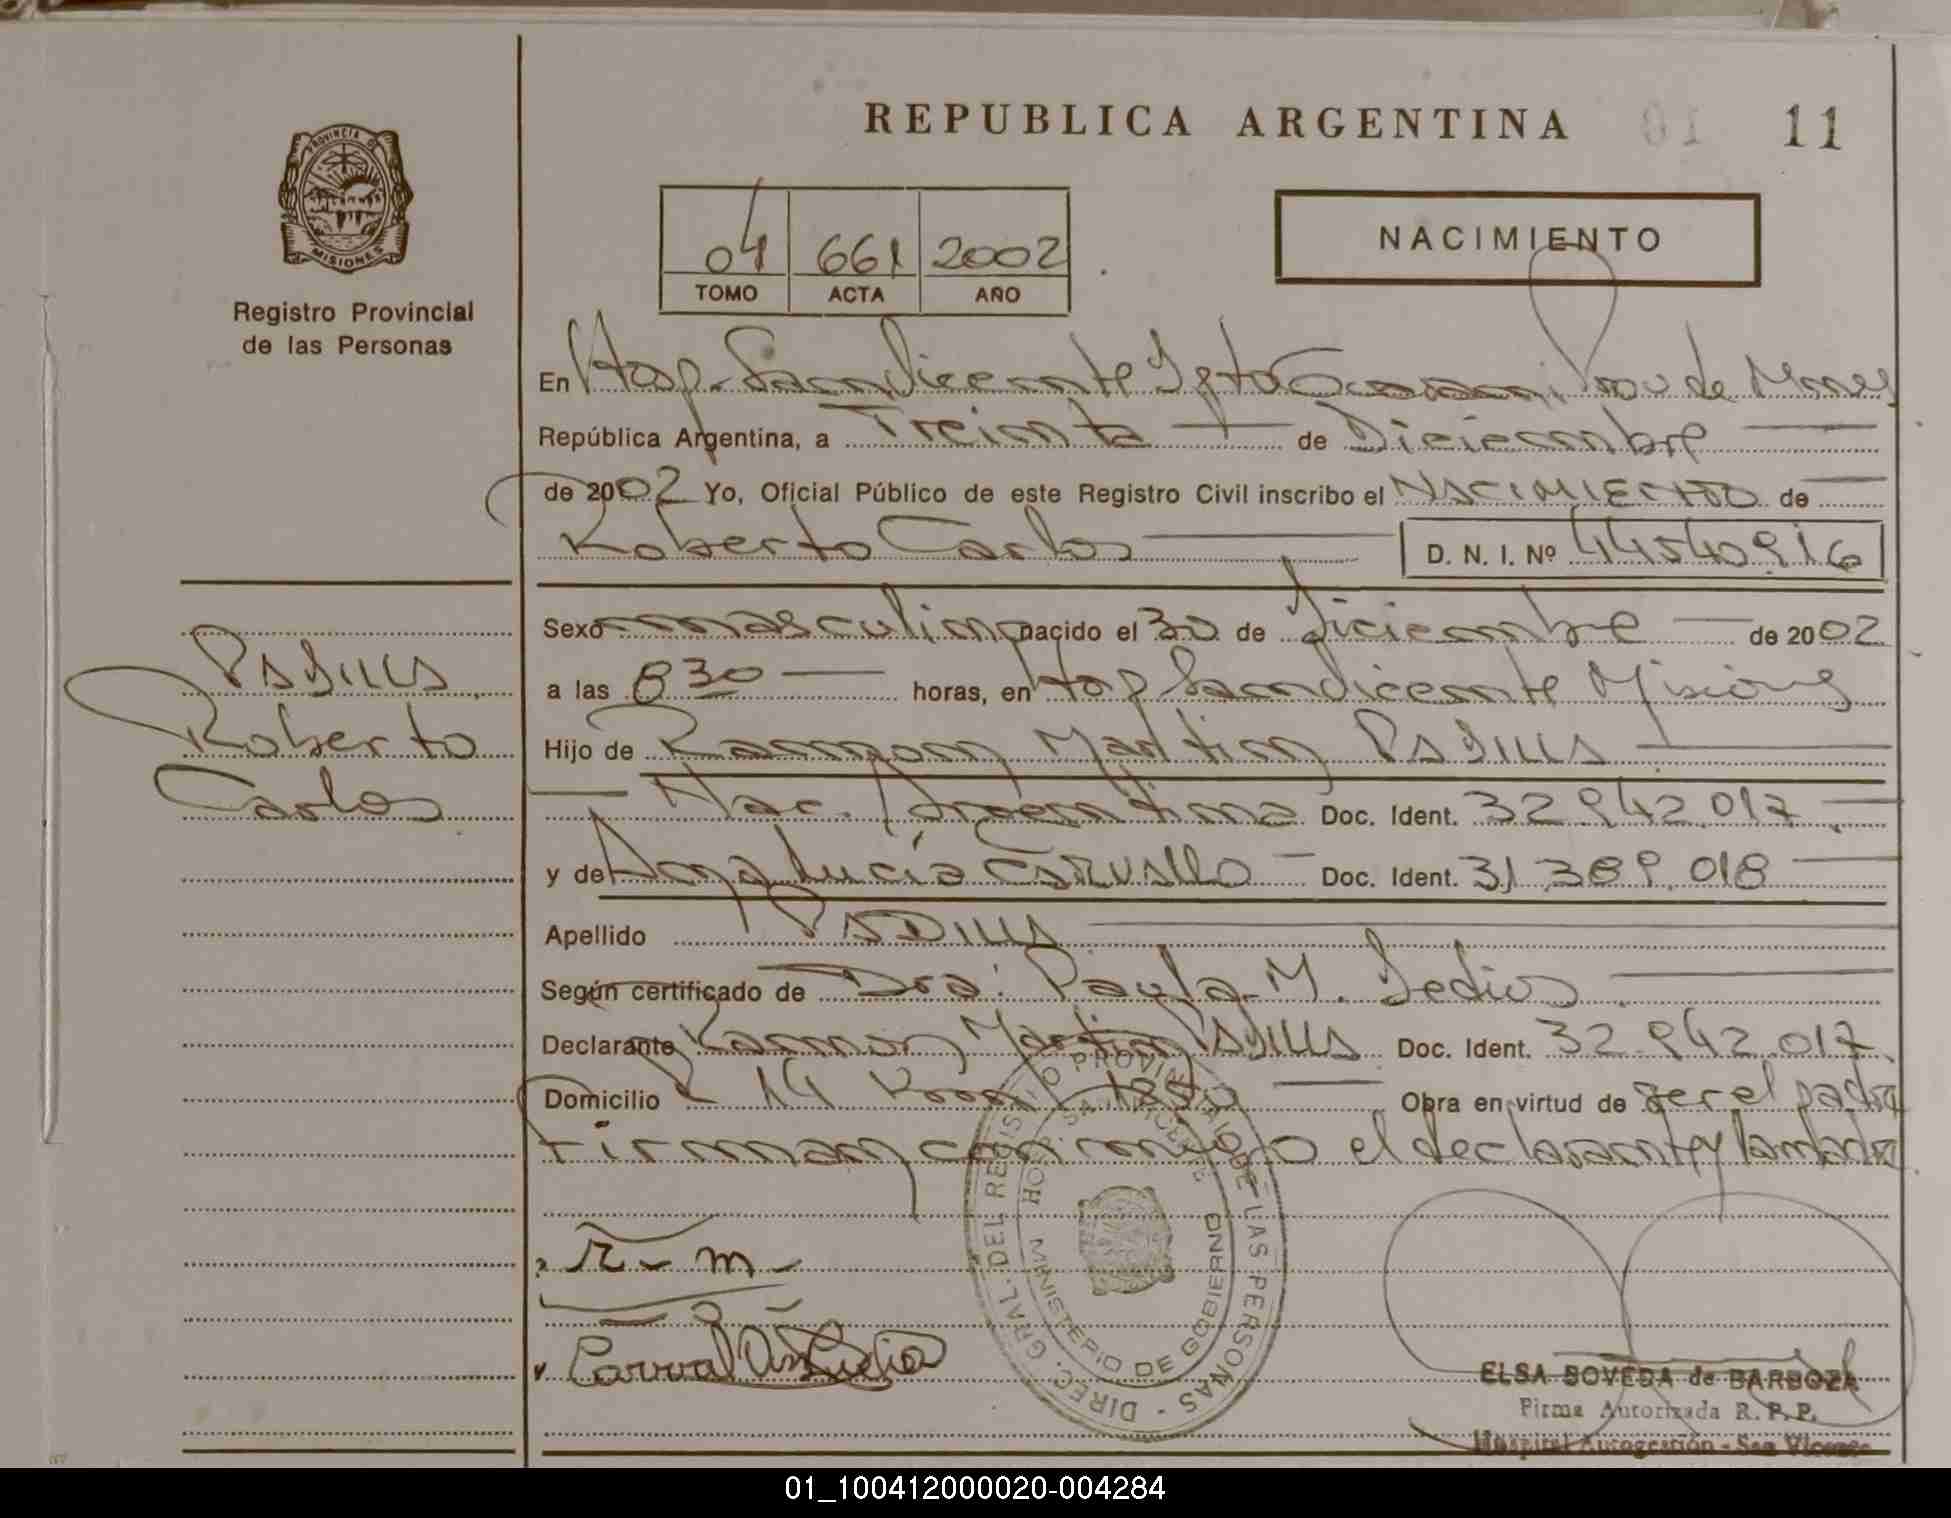 REPUBLICA ARGENTINA 11
PROVINCIA DE
MISIONES
Registro Provincial
de las Personas
04 661 2002
TOMO ACTA AÑO
NACIMIENTO
En Hosp. San Vicente Dpto Guarani Prov de Mnes
República Argentina, a Treinta de Diciembre
de 2002 Yo, Oficial Público de este Registro Civil inscribo el NACIMIENTO de
Roberto Carlos D. N. I. Nº 44540916
Sexo masculino nacido el 30 de Diciembre de 2002
a las 830 horas, en Hosp San Vicente Misiones
Hijo de Ramon Martin PADILLA
Nac. Argentina Doc. Ident. 32.942.017
y de Ana Lucía CARVALLO Doc. Ident. 31.389.018
Apellido PADILLA
Según certificado de Dra. Paula M.
Declarante Ramon Martin PADILLA Doc. Ident. 32.942.017
Domicilio R 14 Km 1350 Obra en virtud de ser el padre
Firman conmigo el declarante y la madre
PADILLA
Roberto
Carlos
R - m -
Carval Ana Lucia
DIREC. GRAL. DEL REGISTRO PROVINCIAL DE LAS PERSONAS -
HOSP. SAN VICENTE
MINISTERIO DE GOBIERNO
ELSA BOVEDA de BARBOZA
Firma Autorizada R. P. P.
Hospital Autogestión - San Vicente
01_100412000020-004284